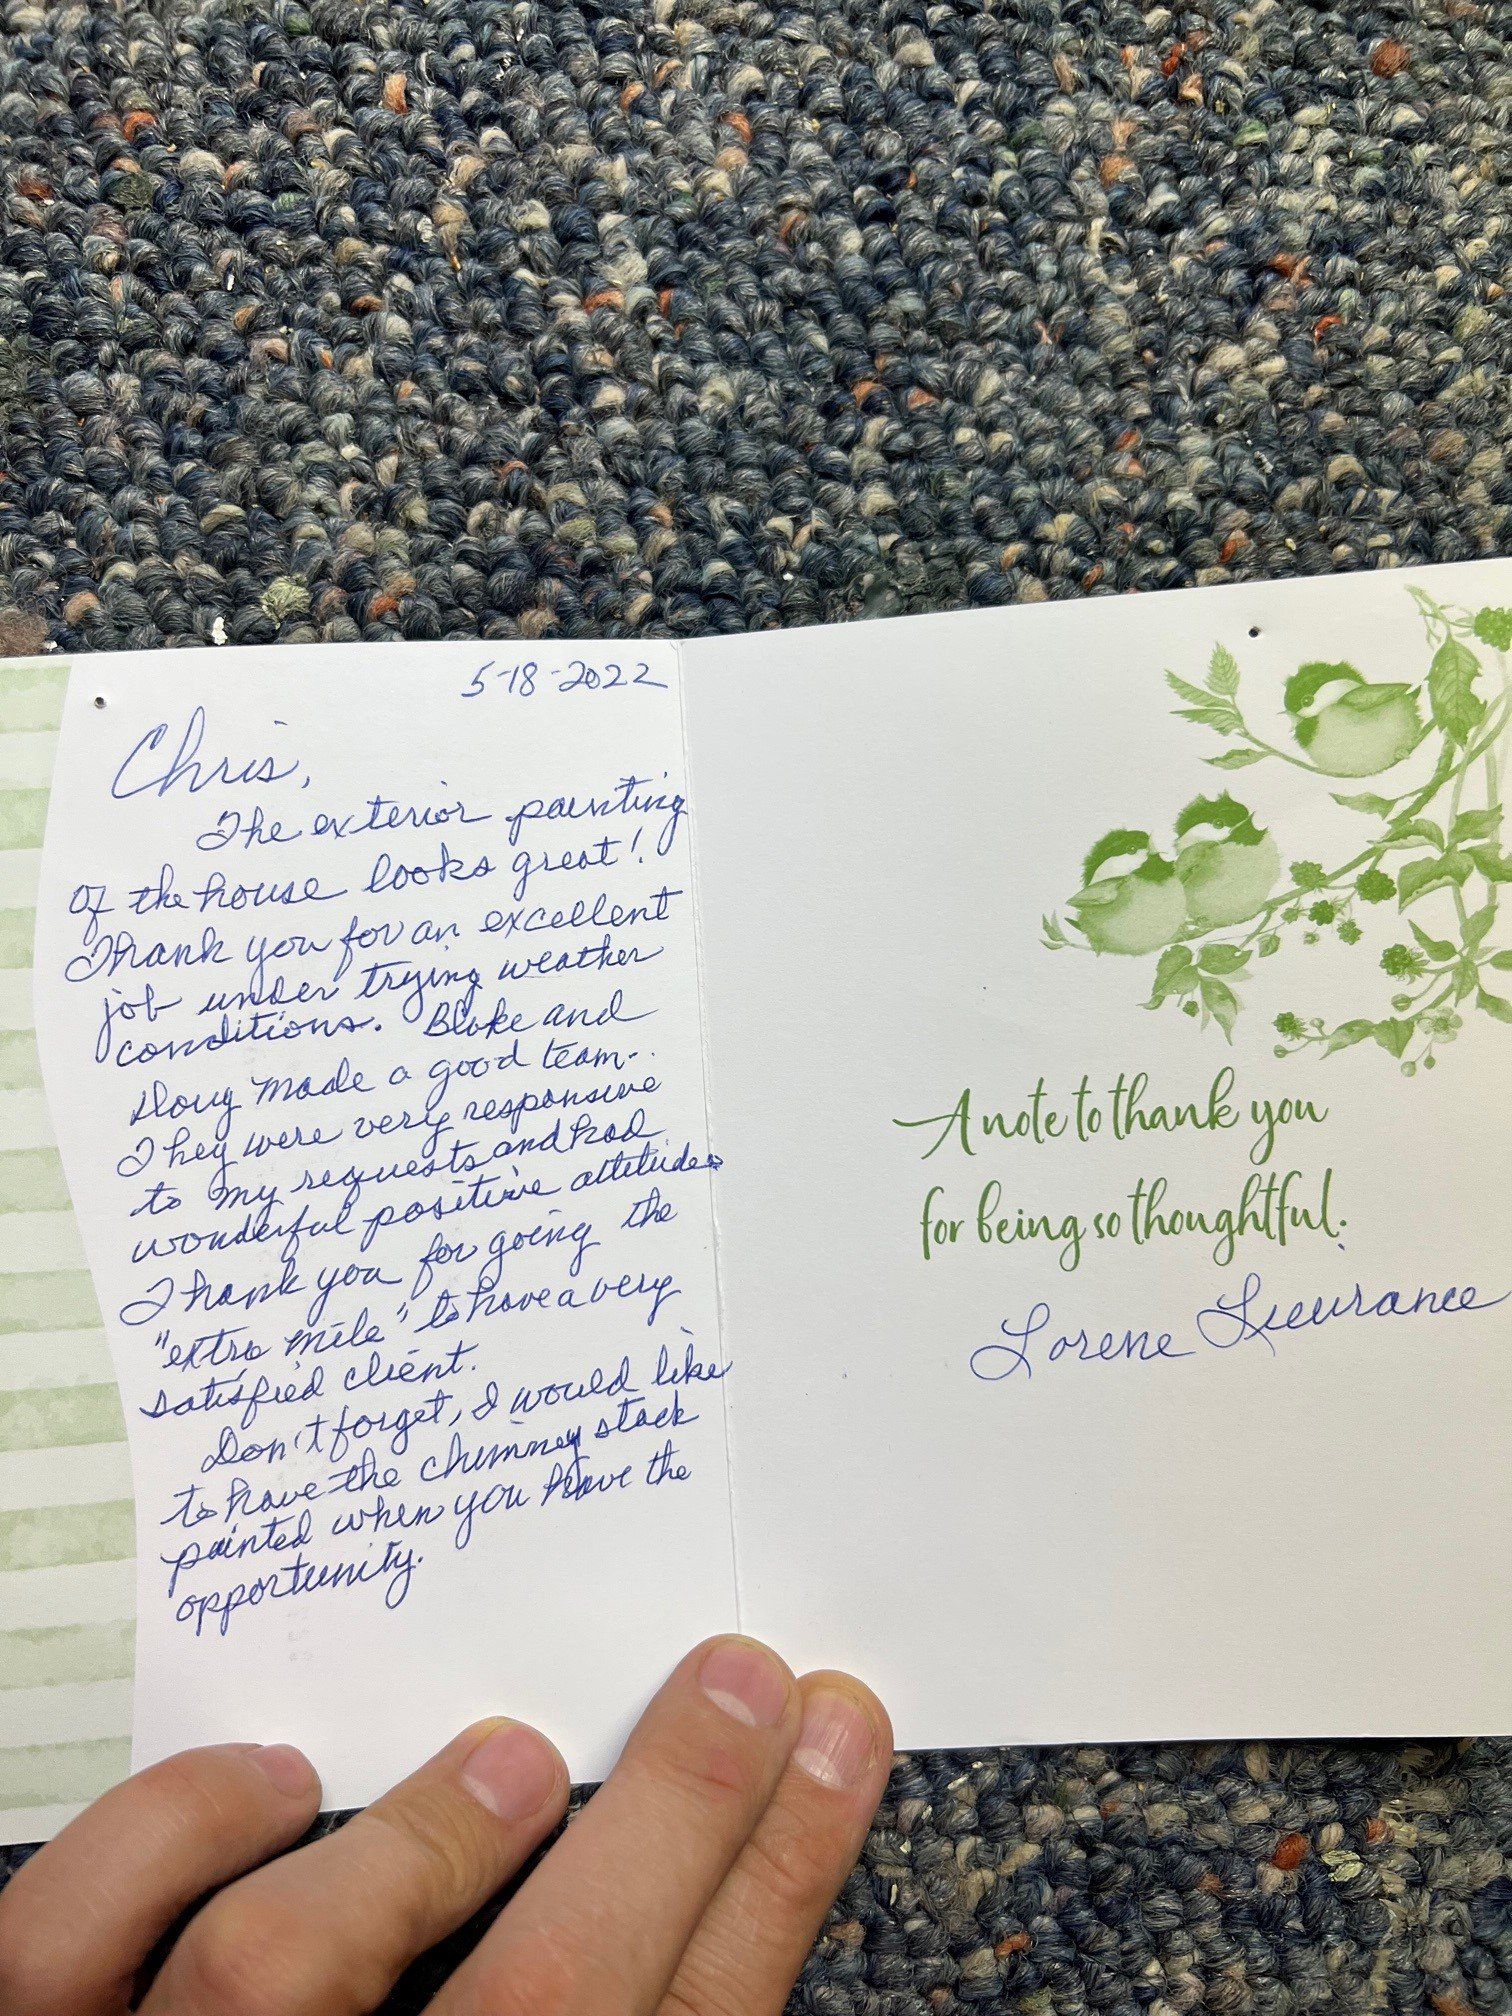 5-18-2022
Chris,
The exterior painting
of the house looks great!
Thank you for an excellent
job under trying weather
conditions. Blake and
Doug made a good team.
They were very responsive
to my requests and had
wonderful positive attitudes
Thank you for going the
"extra mile" to have a very
satisfied client.
Don't forget, I would like
to have the chimney stack
painted when you have the
opportunity.
A note to thank you
for being so thoughtful.
Lorene Lieurance